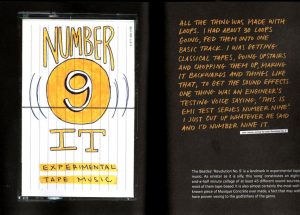 NUMBER
9
IT
EXPERIMENTAL
TAPE MUSIC
ALL THE THING WAS MADE WITH
LOOPS. I HAD ABOUT 30 LOOPS
GOING, FED THEM INTO ONE
BASIC TRACK. I WAS GETTING
CLASSICAL TAPES, GOING UPSTAIRS
AND CHOPPING THEM UP, MAKING
IT BACKWARDS AND THINGS LIKE
THAT, TO GET THE SOUND EFFECTS.
ONE THING WAS AN ENGINEER'S
TESTING VOICE SAYING, 'THIS IS
EMI TEST SERIES NUMBER NINE.'
I JUST CUT UP WHATEVER HE SAID
AND I'D NUMBER NINE IT.
The Beatles' 'Revolution No. 9' is a landmark in experimental tape
music. As sinister as it is silly, this 'song' comprises an eight-
and-a-half minute collage of at least 45 different sound sources,
most of them tape-based. It is also almost certainly the most well
known piece of Musique Concrète ever made, a fact that may well
have proven vexing to the godfathers of the genre.